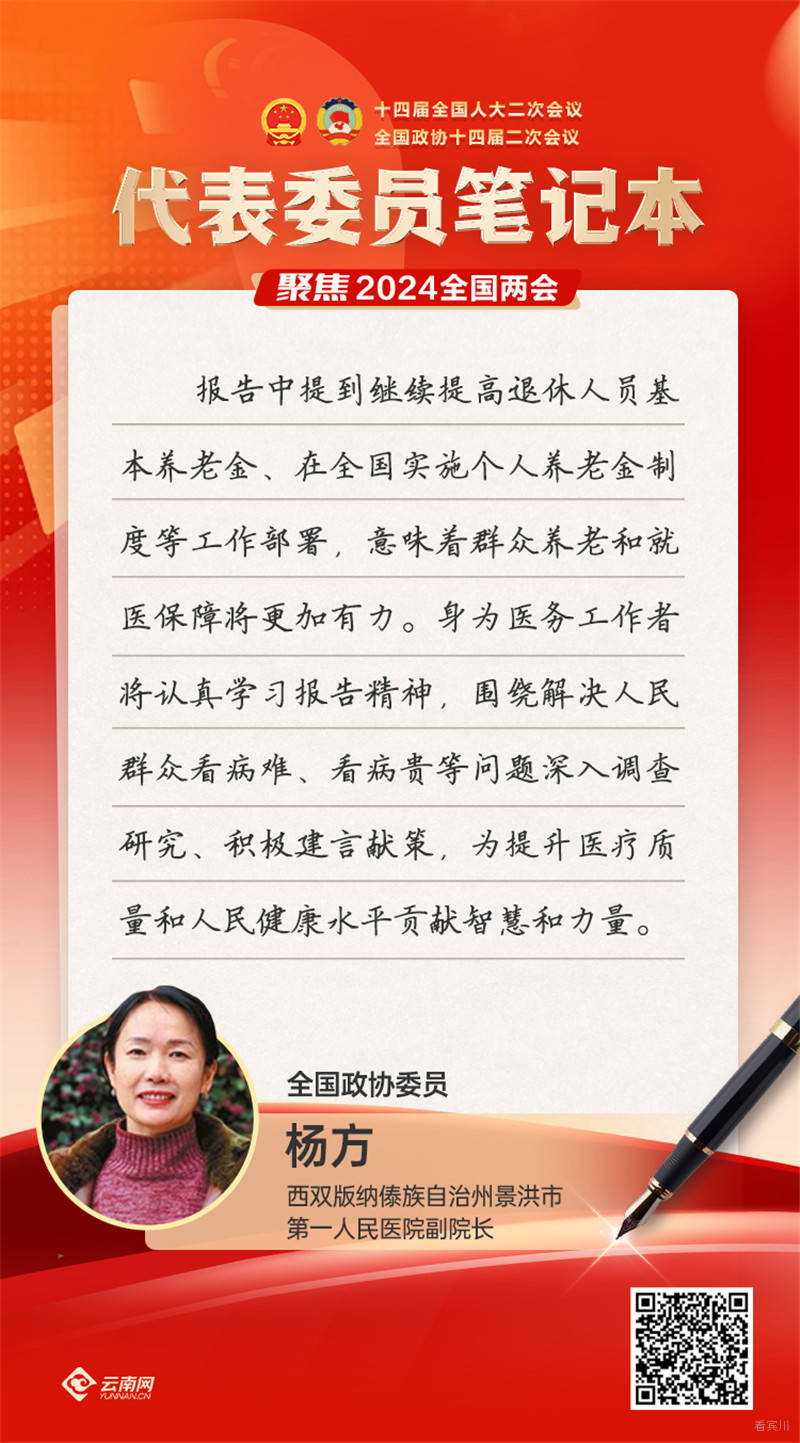 十四届全国人大二次会议
全国政协十四届二次会议
代表委员笔记本
聚焦2024全国两会
报告中提到继续提高退休人员基
本养老金、在全国实施个人养老金制
度等工作部署，意味着群众养老和就
医保障将更加有力。身为医务工作者
将认真学习报告精神，围绕解决人民
群众看病难、看病贵等问题深入调查
研究、积极建言献策，为提升医疗质
量和人民健康水平贡献智慧和力量。
全国政协委员
杨方
西双版纳傣族自治州景洪市
第一人民医院副院长
云南网
YUNNAN.CN
看宾川